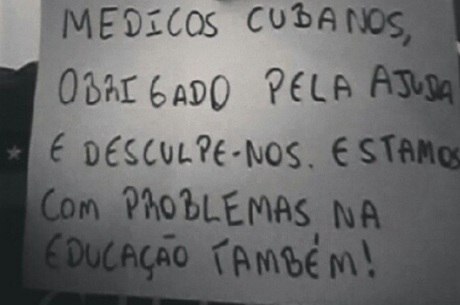 MEDICOS CUBANOS,
OBRIGADO PELA AJUDA
E DESCULPE-NOS. ESTAMOS
COM PROBLEMAS NA
EDUCAÇÃO TAMBÉM!